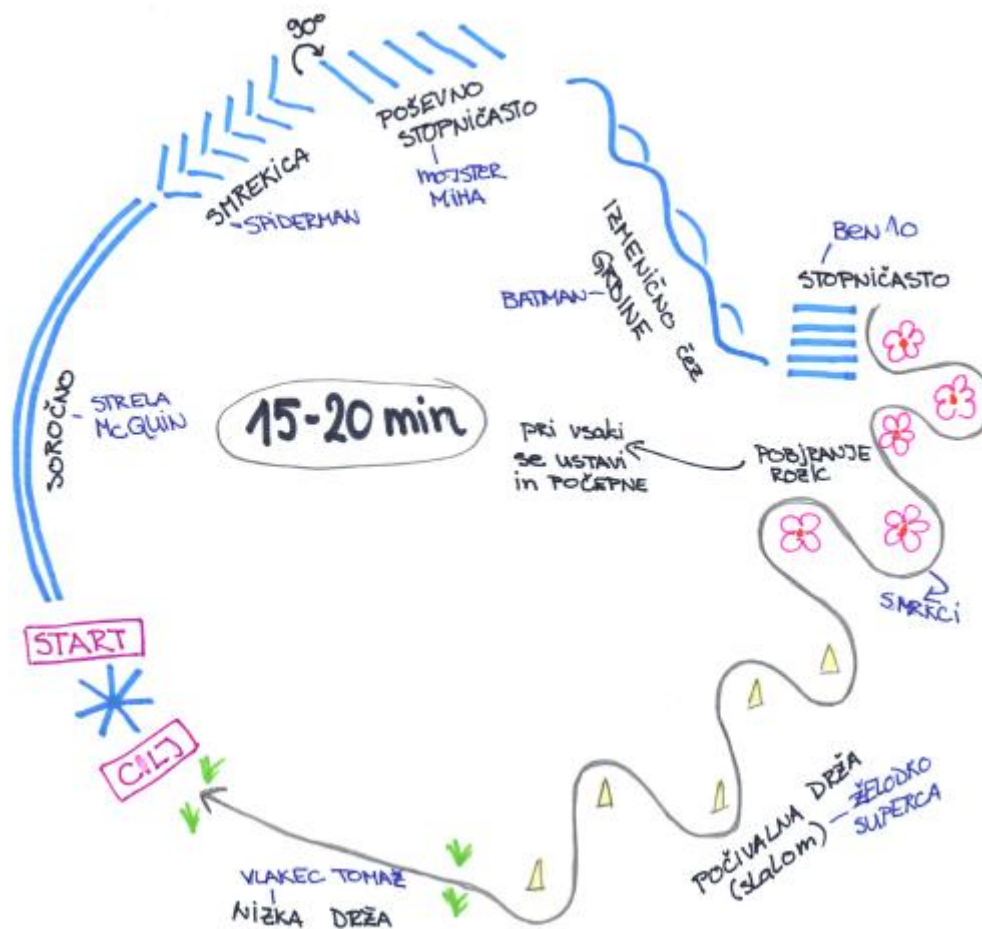 90°
POŠEVNO
STOPNIČASTO
MOJSTER
MIHA
SMREKICA
SPIDERMAN
IZMENIČNO čez
GRBINE
BATMAN
BEN 10
STOPNIČASTO
SOROČNO
STRELA
McQUIN
15-20 min
pri vsaki
se USTAVI
in POČEPNE
POBIRANJE
ROŽIC
SMRKCI
START
CILJ
POČIVALNA DRŽA
(slalom)
ŽELODKO
SUPERCA
VLAKEC TOMAŽ
NIZKA DRŽA